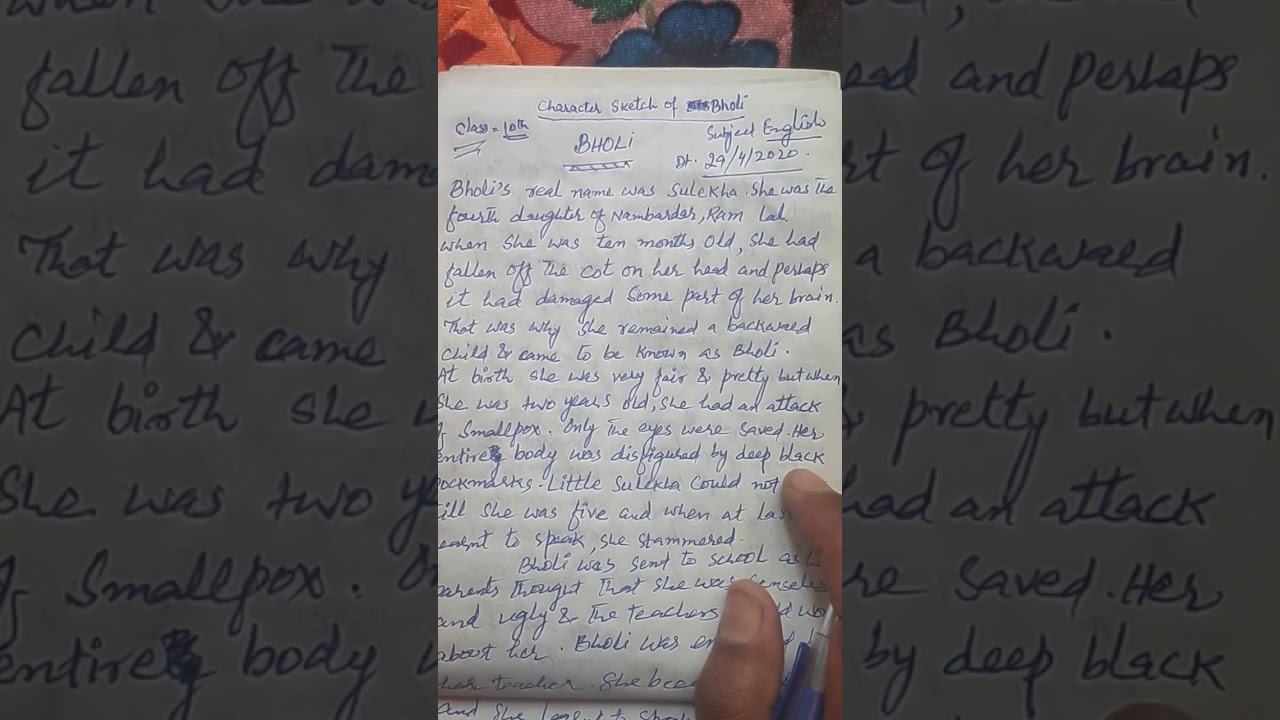 Character Sketch of Bholi
Class = 10th
Subject English
BHOLI
Dt. 29/4/2020.
Bholi's real name was Sulekha. She was the
fourth daughter of Nambardar, Ram Lal.
when she was ten months old, she had
fallen off the cot on her head and perhaps
it had damaged some part of her brain.
That was why she remained a backwaed
child & came to be known as Bholi.
At birth she was very fair & pretty but when
she was two years old, she had an attack
of Smallpox. Only the eyes were saved. Her
entire body was disfigured by deep black
pockmarks. Little Sulekha could not
till she was five and when at las
learnt to speak, she stammered.
Bholi was sent to school as
parents thought that she was
and ugly & the teachers
about her. Bholi was
her teacher. She
and she learnt to